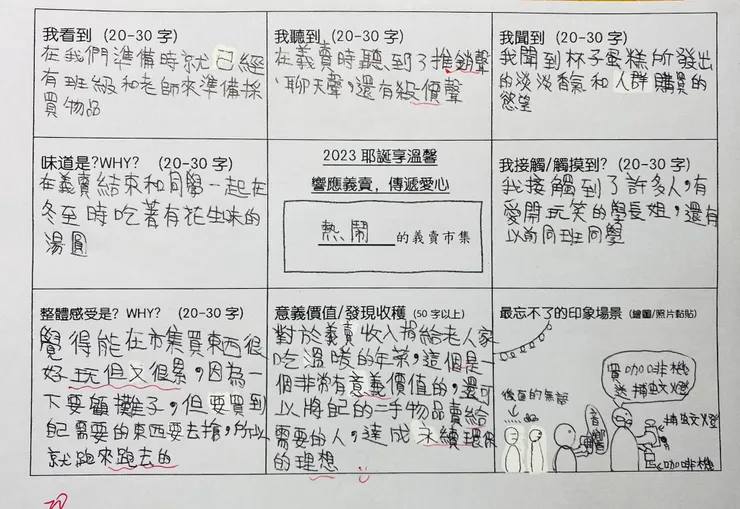 我看到 (20-30 字)
在我們準備時就已經
有班級和老師來準備採
買物品
我聽到 (20-30 字)
在義賣時聽到了推銷聲
、聊天聲,還有殺價聲
我聞到 (20-30 字)
我聞到杯子蛋糕所發出
的淡淡香氣和人群購買的
慾望
味道是?WHY? (20-30 字)
在義賣結束和同學一起在
冬至時吃著有花生味的
湯圓
2023 耶誕享溫馨
響應義賣,傳遞愛心
熱鬧 的義賣市集
我接觸/觸摸到? (20-30 字)
我接觸到了許多人,有
愛開玩笑的學長姐,還有
以前同班同學
整體感受是? WHY? (20-30 字)
覺得能在市集買東西很
好玩但又很累,因為一
下要顧攤子,但要買到
自己需要的東西要去搶,所以
就跑來跑去的
意義價值/發現收穫 (50 字以上)
對於義賣收入捐給老人家
吃溫暖的年菜,這個是一
個非常有意義價值的,還可
以將自己的二手物品賣給
需要的人,達成永續環保
的理想
最忘不了的印象場景 (繪圖/照片黏貼)
買咖啡機
送捕蚊燈
後面的無語
音響
捕蚊燈
咖啡機